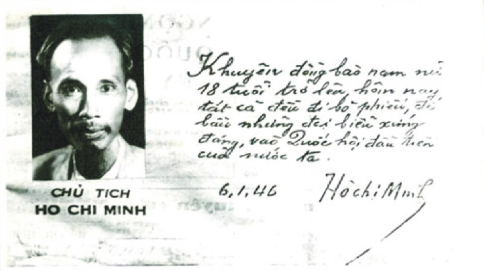 Khuyên đồng bào nam nữ
18 tuổi trở lên hôm nay
tất cả đều đi bỏ phiếu, để
bầu những đại biểu xứng
đáng, vào Quốc hội đầu tiên
của nước ta.
6.1.46 Hồ Chí Minh
CHỦ TỊCH
HO CHI MINH